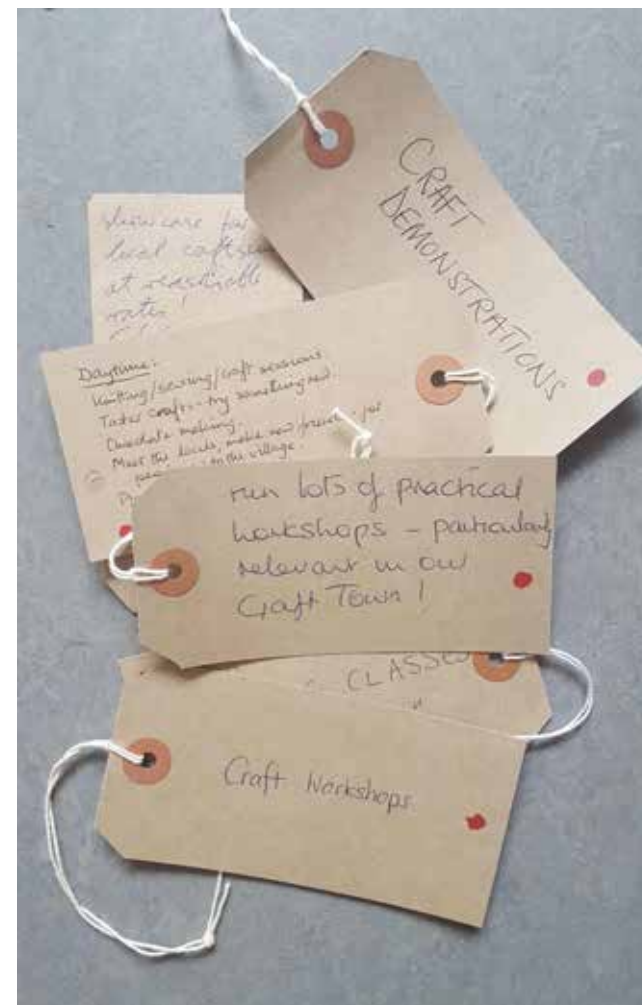 CRAFT
DEMONSTRATIONS
showcase for
local
at reasonable
rates!
Daytime:
Knitting/sewing/craft sessions
Taster craft - try something new.
Chocolate making.
Meet the locals, make new friends - for
to the village.
run lots of practical
workshops - particularly
relevant in our
Craft Town!
CLASSES
Craft Workshops